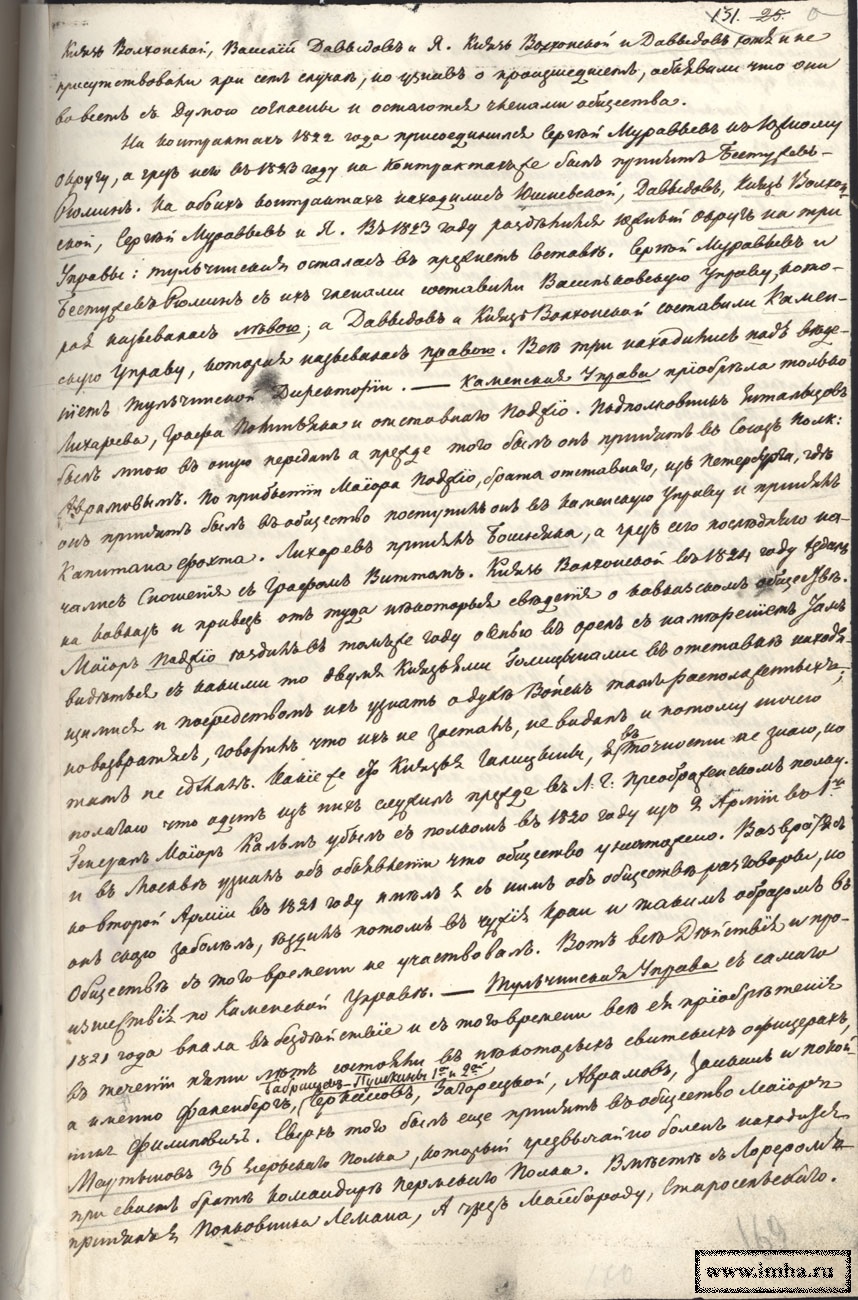 151. 25.
Князь Волхонской, Василій Давыдовъ и Я. Князь Волхонской и Давыдовъ хотя и не
присутствовали при семъ случаѣ, но узнавъ о произшедшемъ, объявили что они
во всемъ съ Думою согласны и остаются членами общества.
На контрактахъ 1822 года присоединился Сергѣй Муравьевъ къ Южному
Округу, а чрезъ него въ 1823 году на Контрактахъ же былъ принятъ Бестужевъ-
Рюминъ. На обоихъ контрактахъ находились Юшневской, Давыдовъ, Князь Волхон-
ской, Сергѣй Муравьевъ и Я. Въ 1823 году раздѣлился Южный Округъ на три
Управы: тульчинская осталась въ прежнемъ Составѣ. Сергѣй Муравьевъ и
Бестужевъ Рюминъ съ ихъ членами составили Васильковскую Управу, кото-
рая называлась лѣвою; а Давыдовъ и Князь Волхонской составили Камен-
скую Управу, которая называлась правою. Всѣ три находились подъ вѣде-
ніемъ Тульчинской Директоріи. — Каменская Управа пріобрѣла только
Лихарева, Графа Полиньяка и отставнаго Поджіо. Подполковникъ Ентальцовъ
былъ мною въ оную переданъ а прежде того былъ онъ принятъ въ Союзъ Полк:
Аврамовымъ. По прибытіи Маіора Поджіо, брата отставнаго, изъ Петербурга, гдѣ
онъ принятъ былъ въ общество поступилъ онъ въ Каменскую Управу и принялъ
Капитана Фохта. Лихаревъ принялъ Бошняка, а чрезъ сего послѣдняго на-
чались Сношенія съ Графомъ Виттомъ. Князь Волхонской въ 1824 году ѣздилъ
на Кавказъ и привезъ отъ туда нѣкоторыя свѣденія о кавказскомъ обществѣ.
Маіоръ Поджіо ѣздилъ въ томъ же году осенью въ Орелъ съ намѣреніемъ тамъ
видѣться съ какими то двумя Князьями Голицыными въ отставкѣ находя-
щимися и посредствомъ ихъ узнать о духѣ Войскъ тамъ расположенныхъ;
но возвратясь, говорилъ что ихъ не засталъ, не видалъ и потому ничего
тамъ не сдѣлалъ. Какіе же это Князья Галицыны, я въ точности не знаю, но
полагаю что одинъ изъ нихъ служилъ прежде въ Л. Г. Преображенскомъ полку.
Генералъ Маіоръ Кальмъ убылъ съ полкомъ въ 1820 году изъ 2 Арміи въ 1ю
и въ Москвѣ узналъ объ объявленіи что общество уничтожено. Возвратясь
ко второй Арміи въ 1821 году имѣлъ я съ нимъ объ обществѣ разговоры, но
онъ скоро заболѣлъ, ѣздилъ потомъ въ чужіе Краи и такимъ образомъ въ
Обществѣ съ того времени не участвовалъ. Вотъ всѣ Дѣйствія и про-
изшествія по Каменской Управѣ. — Тульчинская Управа съ самаго
1821 года впала въ бездѣйствіе и съ того времени всѣ ея пріобрѣтенія
въ теченіи пяти лѣтъ состояли въ нѣкоторыхъ свитскихъ офицерахъ,
Бобрищевъ-Пушкины 1й и 2ой
а именно Фаленбергъ, Черкасовъ, Загорецкой, Аврамовъ,
Филиповичъ. Сверхъ того былъ еще принятъ въ общество Маіоръ
Мартыновъ 36 Егерскаго Полка, который чрезвычайно боленъ находился
при своемъ братѣ командирѣ Пермскаго Полка. Вмѣстѣ съ Лореромъ
принялъ я Полковника Лемана, А чрезъ Майбороду, Старосельскаго.
169
www.imha.ru